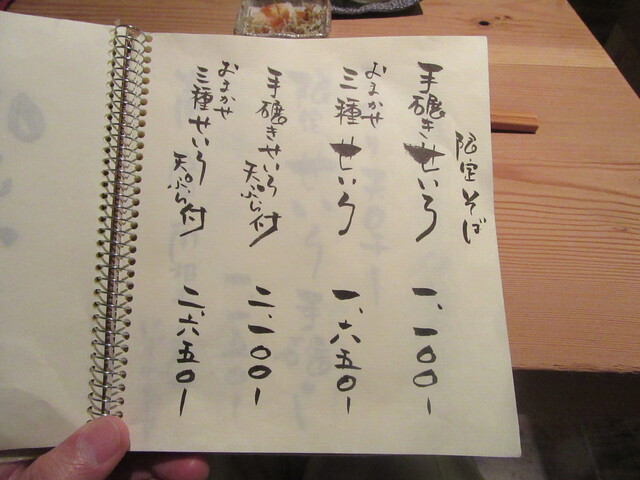 限定そば
手碾きせいろ 一、一〇〇ー
おまかせ
三種せいろ 一、六五〇ー
手碾きせいろ
天ぷら付 二、一〇〇ー
おまかせ
三種せいろ
天ぷら付 二、六五〇ー